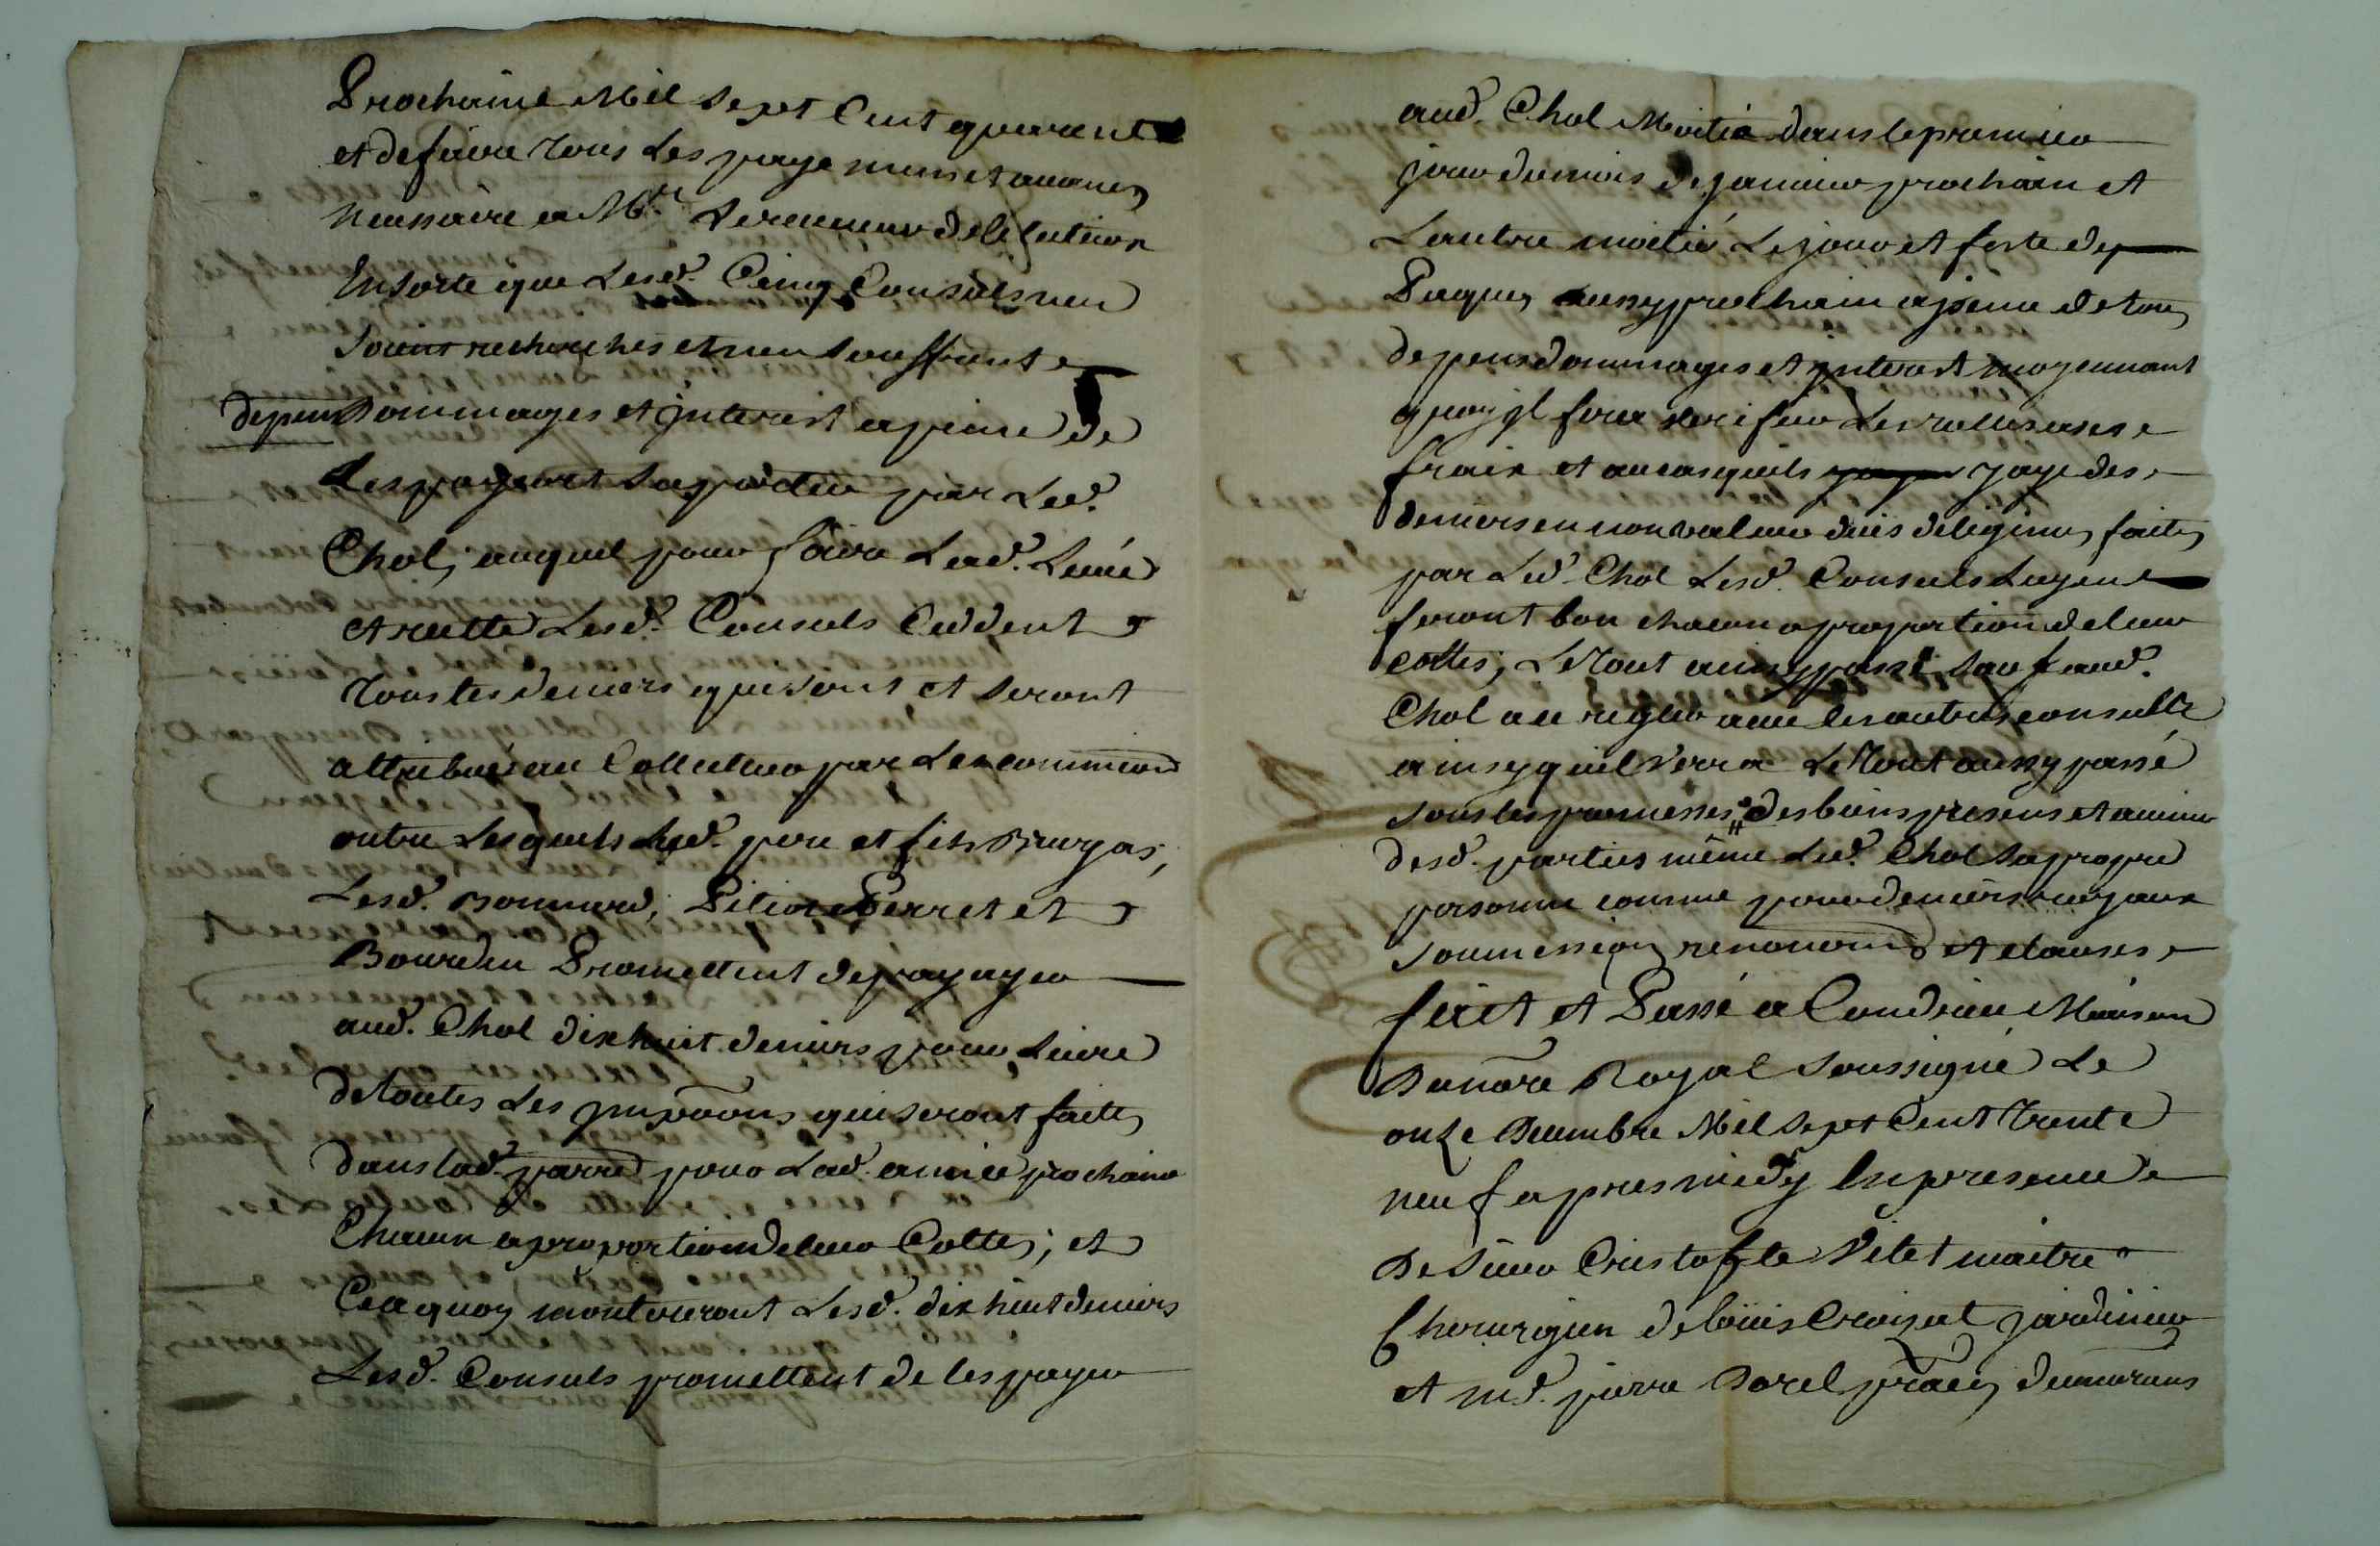 Prochaine Mil sept Cent quarente
et de faire tous les payemens et avances
necessaire a Mrs. Le receveur de lelection
En sorte que Lesd. Cinq Consuls nen
soient recherchés et nen souffrent
depens Dommages et jnterest a peine de
Les payer et suporter par Led.
Chol; auquel pour faire Lad. Levée
et recette Lesd. Consuls Ceddent
tous les deniers qui sont et seront
attribués au Collecteur par Les commions
outre Lesquels Lesd. pere et fils Bruyas,
Lesd. Bonnard, Pitiot Perret et
Bourdin Promettent de payayer
aud. Chol dix huit deniers pour Livre
de toutes Les jmpoons qui seront faittes
dans lad. parre pour Lad. année prochaine
Chacun a proportion de leur Cottes; et
Ce a quoy monteront Lesd. dix huit deniers
Lesd. Consuls promettent de les payer
aud. Chol Moitié dans le premier
jour du mois de janvier prochain et
Lautre moitié Le jour et feste de
Paques aussy prochain a peine de tous
depens dommages et jnterest moyennant
quoy jl fera verifier Les rolles a ses
frais et au cas quils paye des
deniers en non valeur deües diligences faites
par Led. Chol Lesd. Consuls Luy en
feront bon chacun a proportion de leur
cottes, Le tout ainsy passé sauf aud.
Chol a se regler avec les autres consuls
ainsy quil verra Le tout aussy passé
sous les promesses des biens presens et avenir
desd. parties même Led. Chol sa propre
personne comme pour deniers royaux
soumissions renonciaons et clauses
fait et Passé a Condrieu Maison
Du nore Royal soussigné Le
onze Decembre Mil sept Cent trente
neuf apres midy En presence
De sieur Cristofle Pitet maitre
Chirurgien de loüis Croizat jardinier
et md. pierre Borel praen demeurans